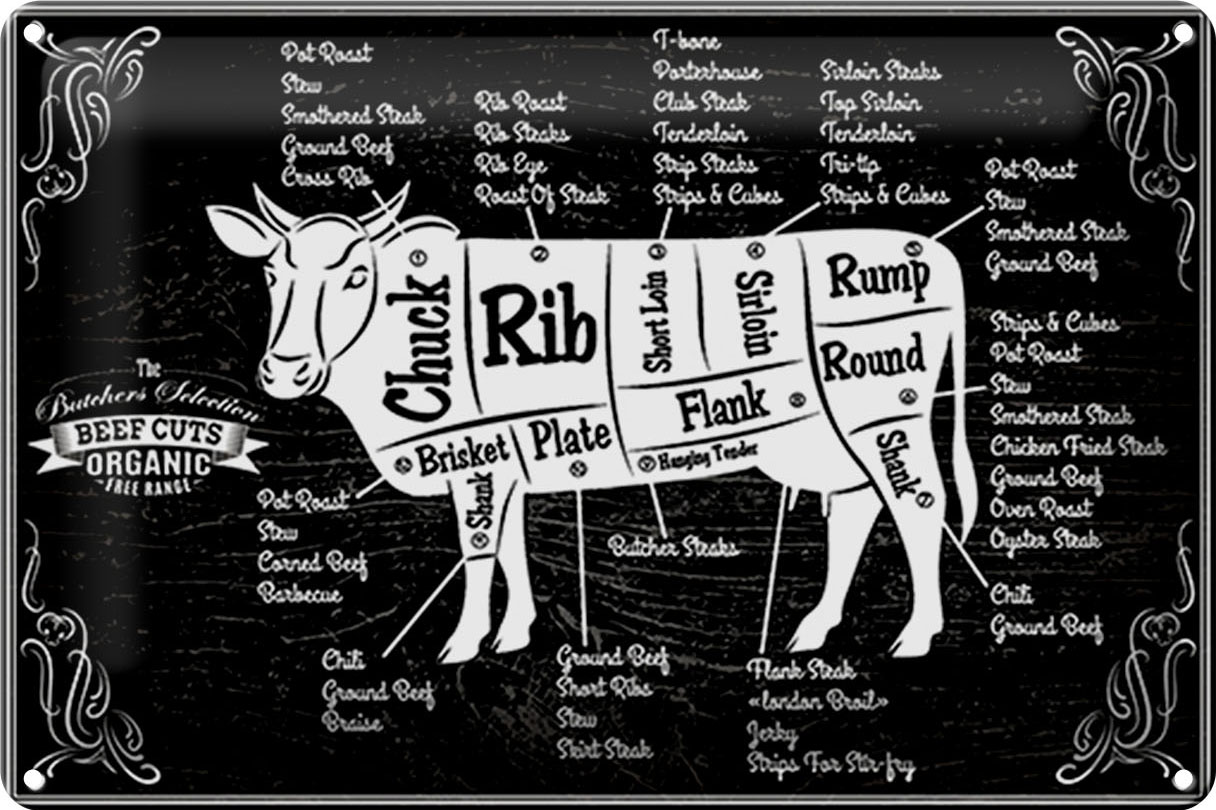 Pot Roast
Stew
Smothered Steak
Ground Beef
Cross Rib
Rib Roast
Rib Steaks
Rib Eye
Roast Of Steak
T-bone
Porterhouse
Club Steak
Tenderloin
Strip Steaks
Strips & Cubes
Sirloin Steaks
Top Sirloin
Tenderloin
Tri-tip
Strips & Cubes
Pot Roast
Stew
Smothered Steak
Ground Beef
Strips & Cubes
Pot Roast
Stew
Smothered Steak
Chicken Fried Steak
Ground Beef
Oven Roast
Oyster Steak
Chuck
Rib
Short Loin
Sirloin
Rump
Round
Flank
Hanging Tender
Brisket
Plate
Shank
Shank
The
Butcher's Selection
BEEF CUTS
ORGANIC
FREE RANGE
Pot Roast
Stew
Corned Beef
Barbecue
Butcher Steaks
Chili
Ground Beef
Chili
Ground Beef
Braise
Ground Beef
Short Ribs
Stew
Skirt Steak
Flank Steak
«london Broil»
Jerky
Strips For Stir-fry